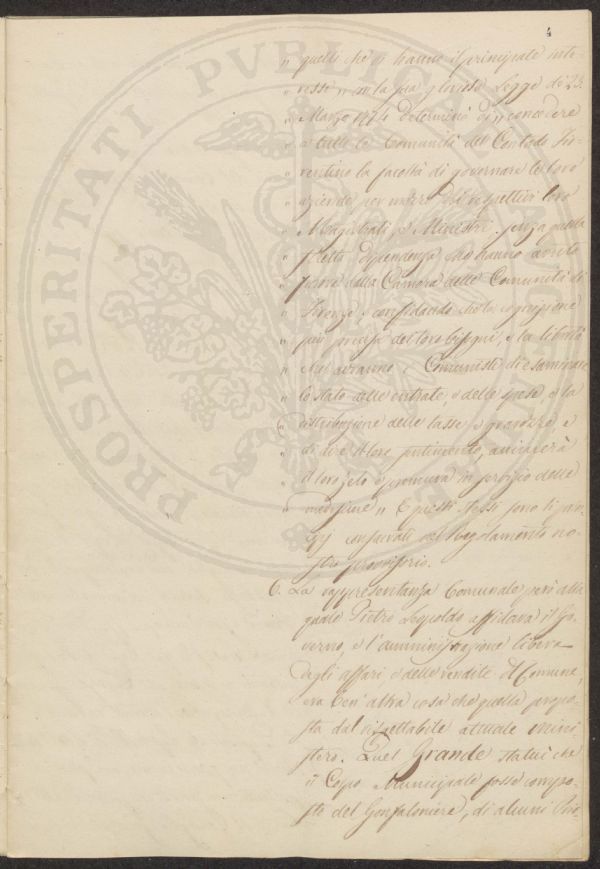 4
" quelli che vi hanno il principale inte-
" resse " con la sua gloriosa Legge de' 23.
" Marzo 1774 determinò di " concedere
" a tutte le Comunità del Contado Fio-
" rentino la facoltà di governare le loro
" aziende per mezzo dei respettivi loro
" Magistrati, e Ministri, senza quella
" stretta dipendenza, che hanno avuto
" finora dalla Camera delle Comunità di
" Firenze, confidando che la cognizione
" più precisa dei loro bisogni, e la libertà
" che avranno i Comunisti di esaminare
" lo stato delle entrate, e delle spese e la
" distribuzione delle tasse, e gravezze, e
" di dire il loro sentimento, animerà
" il loro zelo e premura in servizio delle
" medesime " E questi stessi sono li
consacrati nel Regolamento no-
stro provvisorio.
6. La rappresentanza Comunale però alla
quale Pietro Leopoldo affidava il Go-
verno, e l'amministrazione libera
degli affari e delle rendite del Comune,
era ben' altra cosa che quella propo-
sta dal rispettabile attuale Mini-
stero. Quel Grande statuì che
il Corpo Municipale fosse compo-
sto del Gonfaloniere, di alcuni Prio-
PROSPERITATI PUBLICAE AUGENDAE